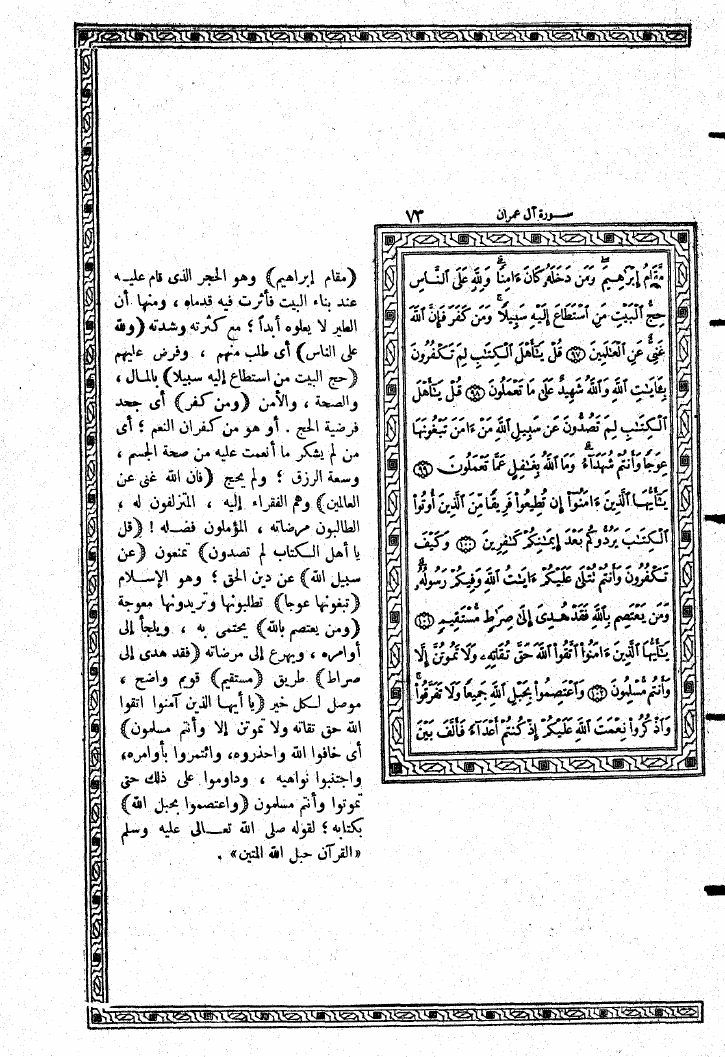 سورة آل عمران ٧٣
مَّقَامُ إِبْرَٰهِيمَ وَمَن دَخَلَهُۥ كَانَ ءَامِنًا وَلِلَّهِ عَلَى ٱلنَّاسِ
حِجُّ ٱلْبَيْتِ مَنِ ٱسْتَطَاعَ إِلَيْهِ سَبِيلًا وَمَن كَفَرَ فَإِنَّ ٱللَّهَ
غَنِىٌّ عَنِ ٱلْعَٰلَمِينَ ٩٧ قُلْ يَٰٓأَهْلَ ٱلْكِتَٰبِ لِمَ تَكْفُرُونَ
بِـَٔايَٰتِ ٱللَّهِ وَٱللَّهُ شَهِيدٌ عَلَىٰ مَا تَعْمَلُونَ ٩٨ قُلْ يَٰٓأَهْلَ
ٱلْكِتَٰبِ لِمَ تَصُدُّونَ عَن سَبِيلِ ٱللَّهِ مَنْ ءَامَنَ تَبْغُونَهَا
عِوَجًا وَأَنتُمْ شُهَدَآءُ وَمَا ٱللَّهُ بِغَٰفِلٍ عَمَّا تَعْمَلُونَ ٩٩
يَٰٓأَيُّهَا ٱلَّذِينَ ءَامَنُوٓا۟ إِن تُطِيعُوا۟ فَرِيقًا مِّنَ ٱلَّذِينَ أُوتُوا۟
ٱلْكِتَٰبَ يَرُدُّوكُم بَعْدَ إِيمَٰنِكُمْ كَٰفِرِينَ ١٠٠ وَكَيْفَ
تَكْفُرُونَ وَأَنتُمْ تُتْلَىٰ عَلَيْكُمْ ءَايَٰتُ ٱللَّهِ وَفِيكُمْ رَسُولُهُۥ
وَمَن يَعْتَصِم بِٱللَّهِ فَقَدْ هُدِىَ إِلَىٰ صِرَٰطٍ مُّسْتَقِيمٍ ١٠١
يَٰٓأَيُّهَا ٱلَّذِينَ ءَامَنُوا۟ ٱتَّقُوا۟ ٱللَّهَ حَقَّ تُقَاتِهِۦ وَلَا تَمُوتُنَّ إِلَّا
وَأَنتُم مُّسْلِمُونَ ١٠٢ وَٱعْتَصِمُوا۟ بِحَبْلِ ٱللَّهِ جَمِيعًا وَلَا تَفَرَّقُوا۟
وَٱذْكُرُوا۟ نِعْمَتَ ٱللَّهِ عَلَيْكُمْ إِذْ كُنتُمْ أَعْدَآءً فَأَلَّفَ بَيْنَ
(مقام إبراهيم) وهو الحجر الذى قام عليه
عند بناء البيت فأثرت فيه قدماه ، ومنها أن
الطير لا يعلوه أبداً ؛ مع كثرته وشدته (ولله
على الناس) أى طلب منهم ، وفرض عليهم
(حج البيت من استطاع إليه سبيلا) بالمال ،
والصحة ، والأمن (ومن كفر) أى جحد
فرضية الحج . أو هو من كفران النعم ؛ أى
من لم يشكر ما أنعمت عليه من صحة الجسم ،
وسعة الرزق ؛ ولم يحج (فان الله غنى عن
العالمين) وهم الفقراء إليه ، المتزلفون له ،
الطالبون مرضاته ، المؤملون فضله ! (قل
يا أهل الكتاب لم تصدون) تمنعون (عن
سبيل الله) عن دين الحق ؛ وهو الإسلام
(تبغونها عوجا) تطلبونها وتريدونها معوجة
(ومن يعتصم بالله) يحتمى به ، ويلجأ إلى
أوامره ، ويهرع إلى مرضاته (فقد هدى إلى
صراط) طريق (مستقيم) قويم واضح ،
موصل لكل خير (يا أيها الذين آمنوا اتقوا
الله حق تقاته ولا تموتن إلا وأنتم مسلمون)
أى خافوا الله واحذروه، وائتمروا بأوامره،
واجتنبوا نواهيه ، وداوموا على ذلك حتى
تموتوا وأنتم مسلمون (واعتصموا بحبل الله)
بكتابه ؛ لقوله صلى الله تعالى عليه وسلم
«القرآن حبل الله المتين» .